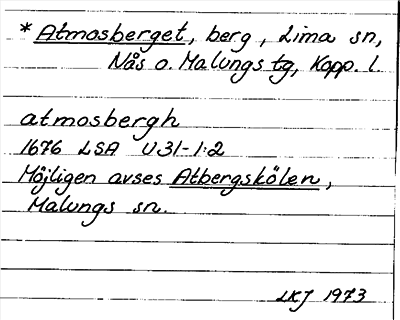 * Atmosberget, berg, Lima sn,
Nås o. Malungs tg, Kopp. l.
atmosbergh
1676 LSA U31-1:2
Möjligen avses Atbergskölen,
Malungs sn.
LKJ 1973